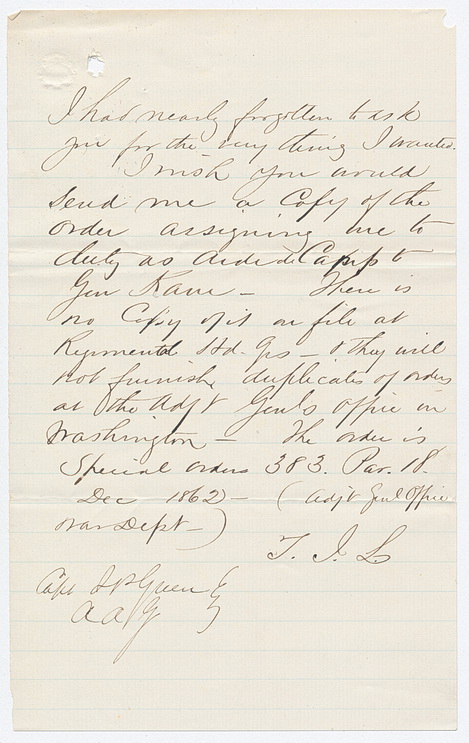 I had nearly forgotten to ask
you for the very thing I wanted.
I wish you would
send me a Copy of the
order assigning me to
duty as Aide de Camp to
Gen Kane — There is
no Copy of it on file at
Regimental Hd. Qrs — & they will
not furnish duplicates of orders
at the Adjt Genls office in
Washington — The order is
Special orders 383. Par. 18.
Dec 1862 — (Adjt Genl Office
War Dept —)
T. J. L
Capt S P Green
A A G